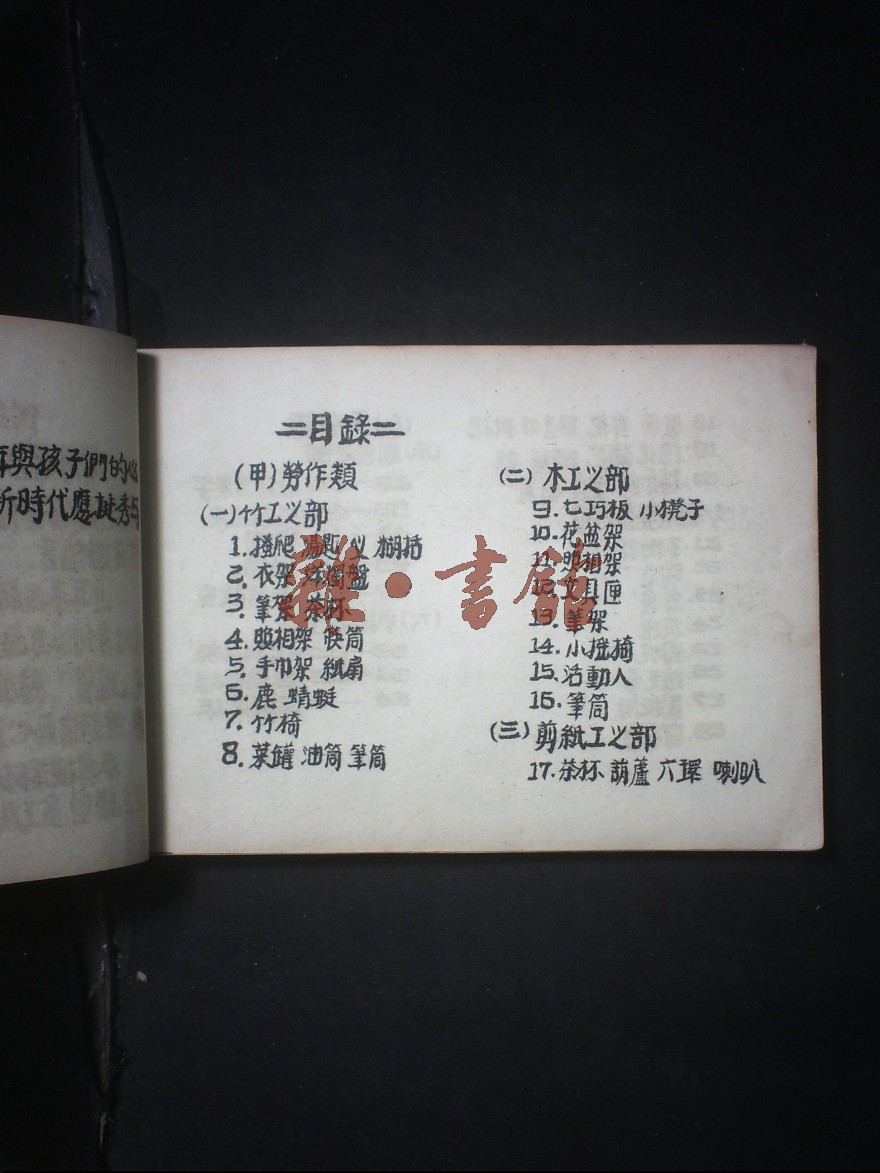 與孩子們的心
新時代應
=目錄=
(甲)勞作類
(一)竹工之部
1. 搔爬 湯匙 糊括
2. 衣架
3. 筆架 茶杯
4. 照相架 筷筒
5. 手巾架 紙扇
6. 鹿 蜻蜓
7. 竹椅
8. 茶罐 油筒 筆筒
(二)木工之部
9. 七巧板 小櫈子
10. 花盆架
11. 照相架
12. 文具匣
13. 筆架
14. 小搖椅
15. 活動人
16. 筆筒
(三)剪紙工之部
17. 茶杯 葫蘆 六環 喇叭
雜·書館